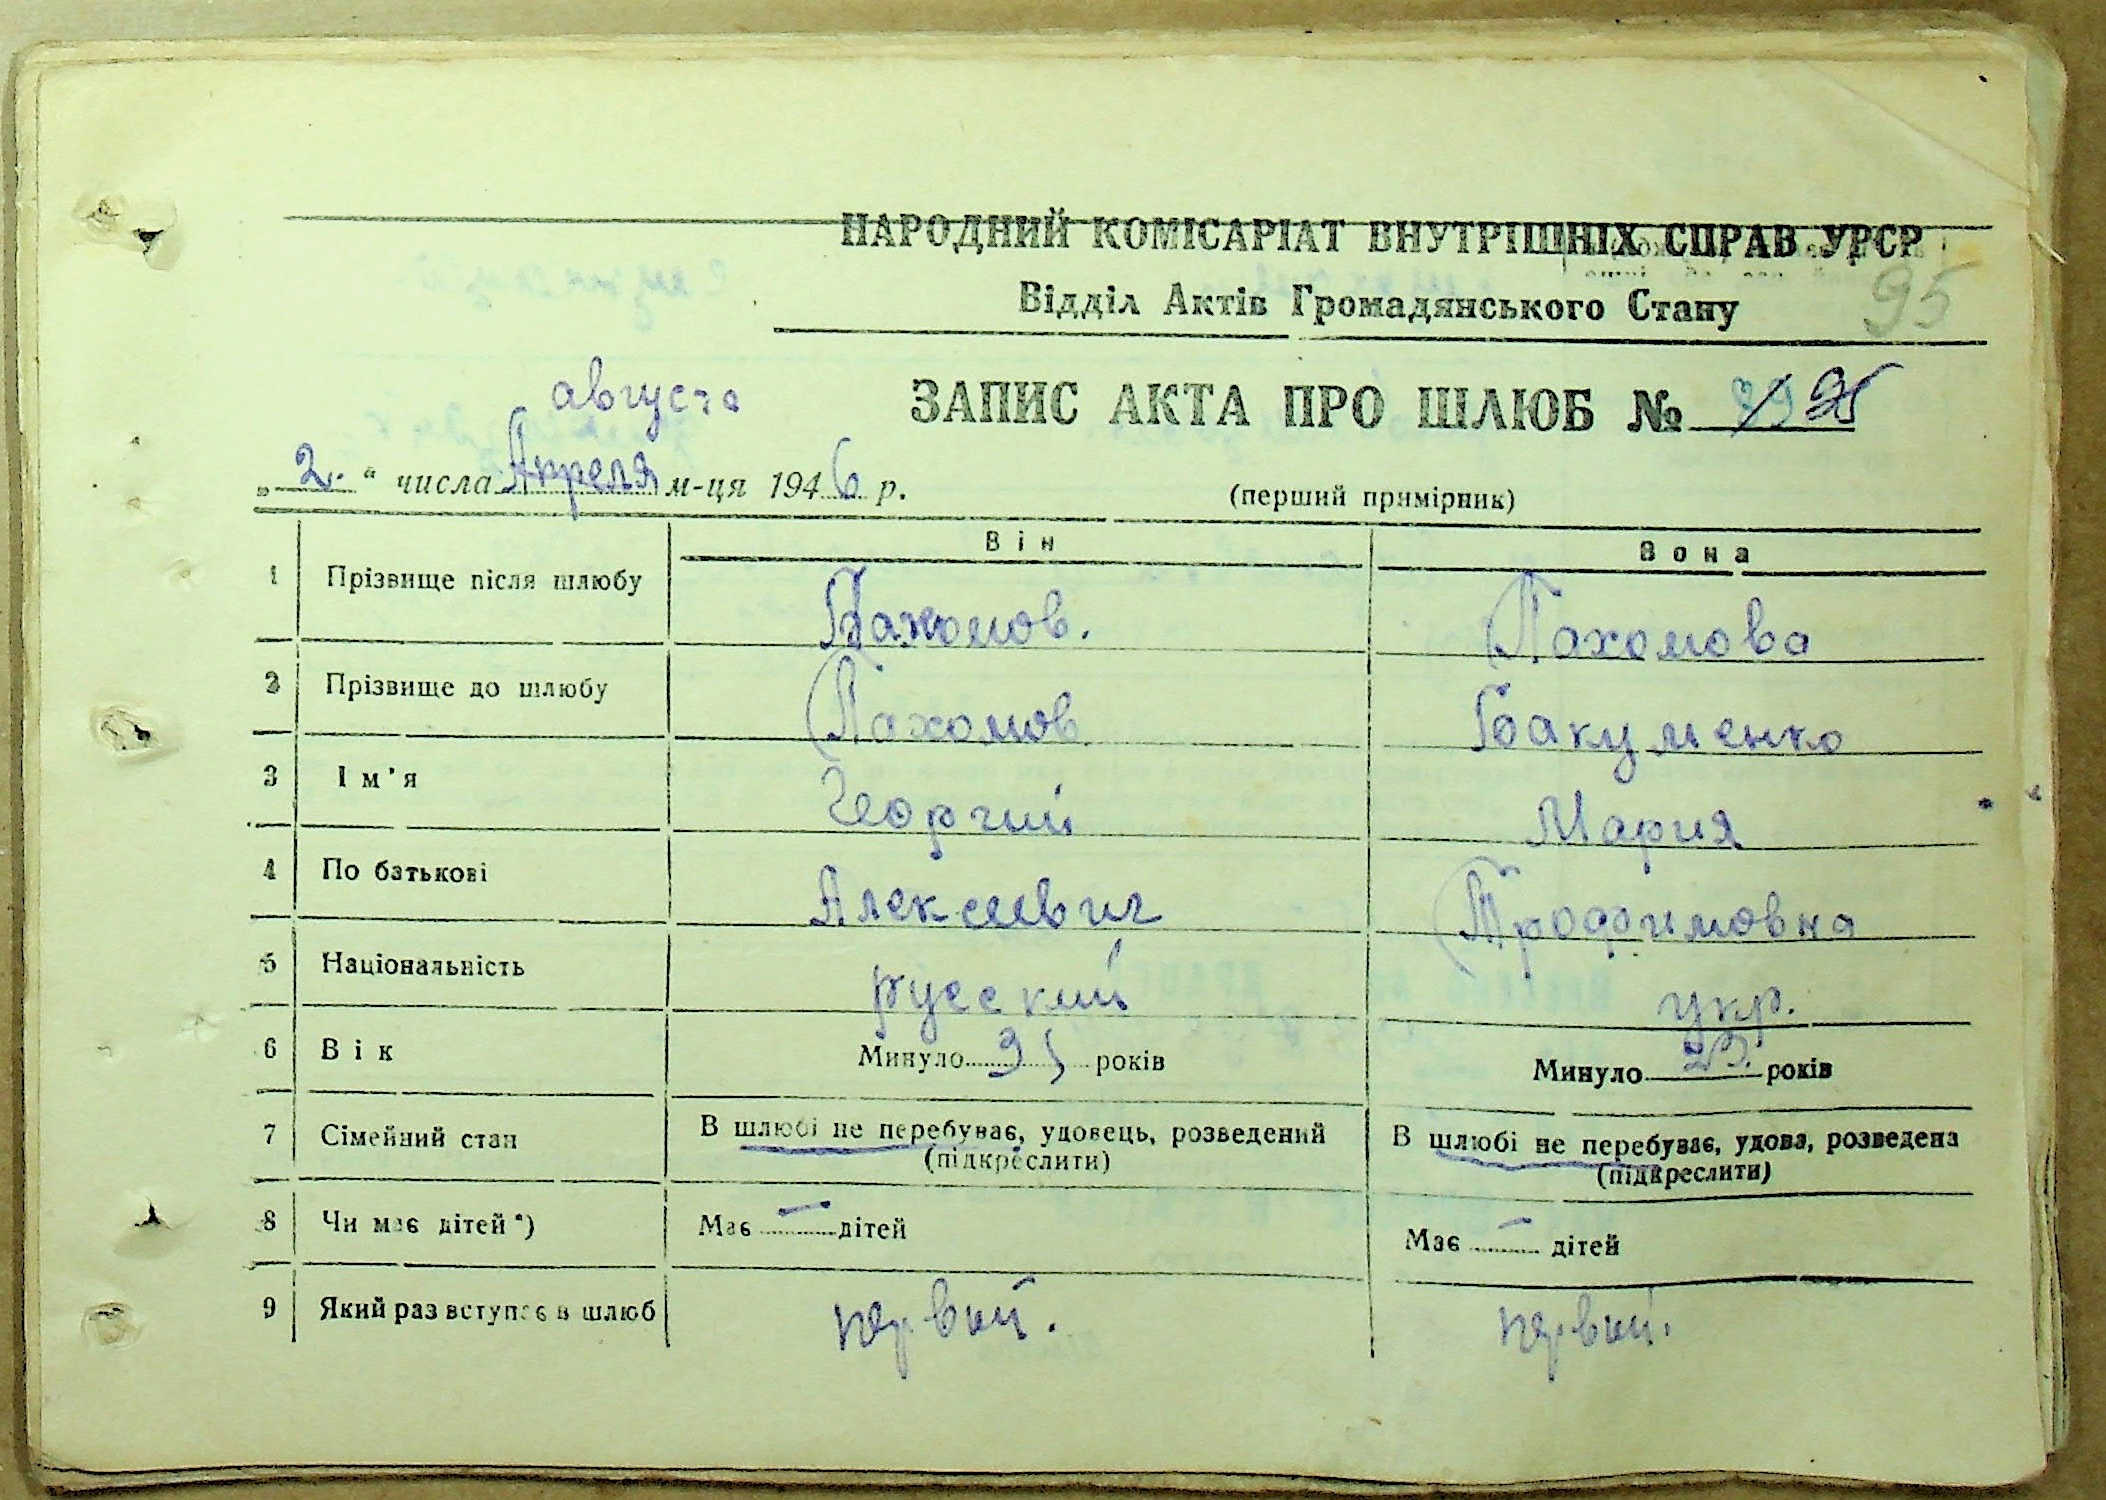 НАРОДНИЙ КОМІСАРІАТ ВНУТРІШНІХ СПРАВ УРСР
Відділ Актів Громадянського Стану
95
ЗАПИС АКТА ПРО ШЛЮБ № 95
августа
„ 2. " числа Апреля м-ця 1946 р.
(перший примірник)
Він Вона
1 Прізвище після шлюбу Пахомов. Пахомова
2 Прізвище до шлюбу Пахомов Бакуменко
3 Ім'я Георгий Мария
4 По батькові Алексеевич Трофимовна
5 Національність русский укр.
6 Вік Минуло 35 років Минуло 23. років
7 Сімейний стан В шлюбі не перебуває, удовець, розведений (підкреслити) В шлюбі не перебуває, удова, розведена (підкреслити)
8 Чи має дітей*) Має — дітей Має — дітей
9 Який раз вступає в шлюб первый. первый.